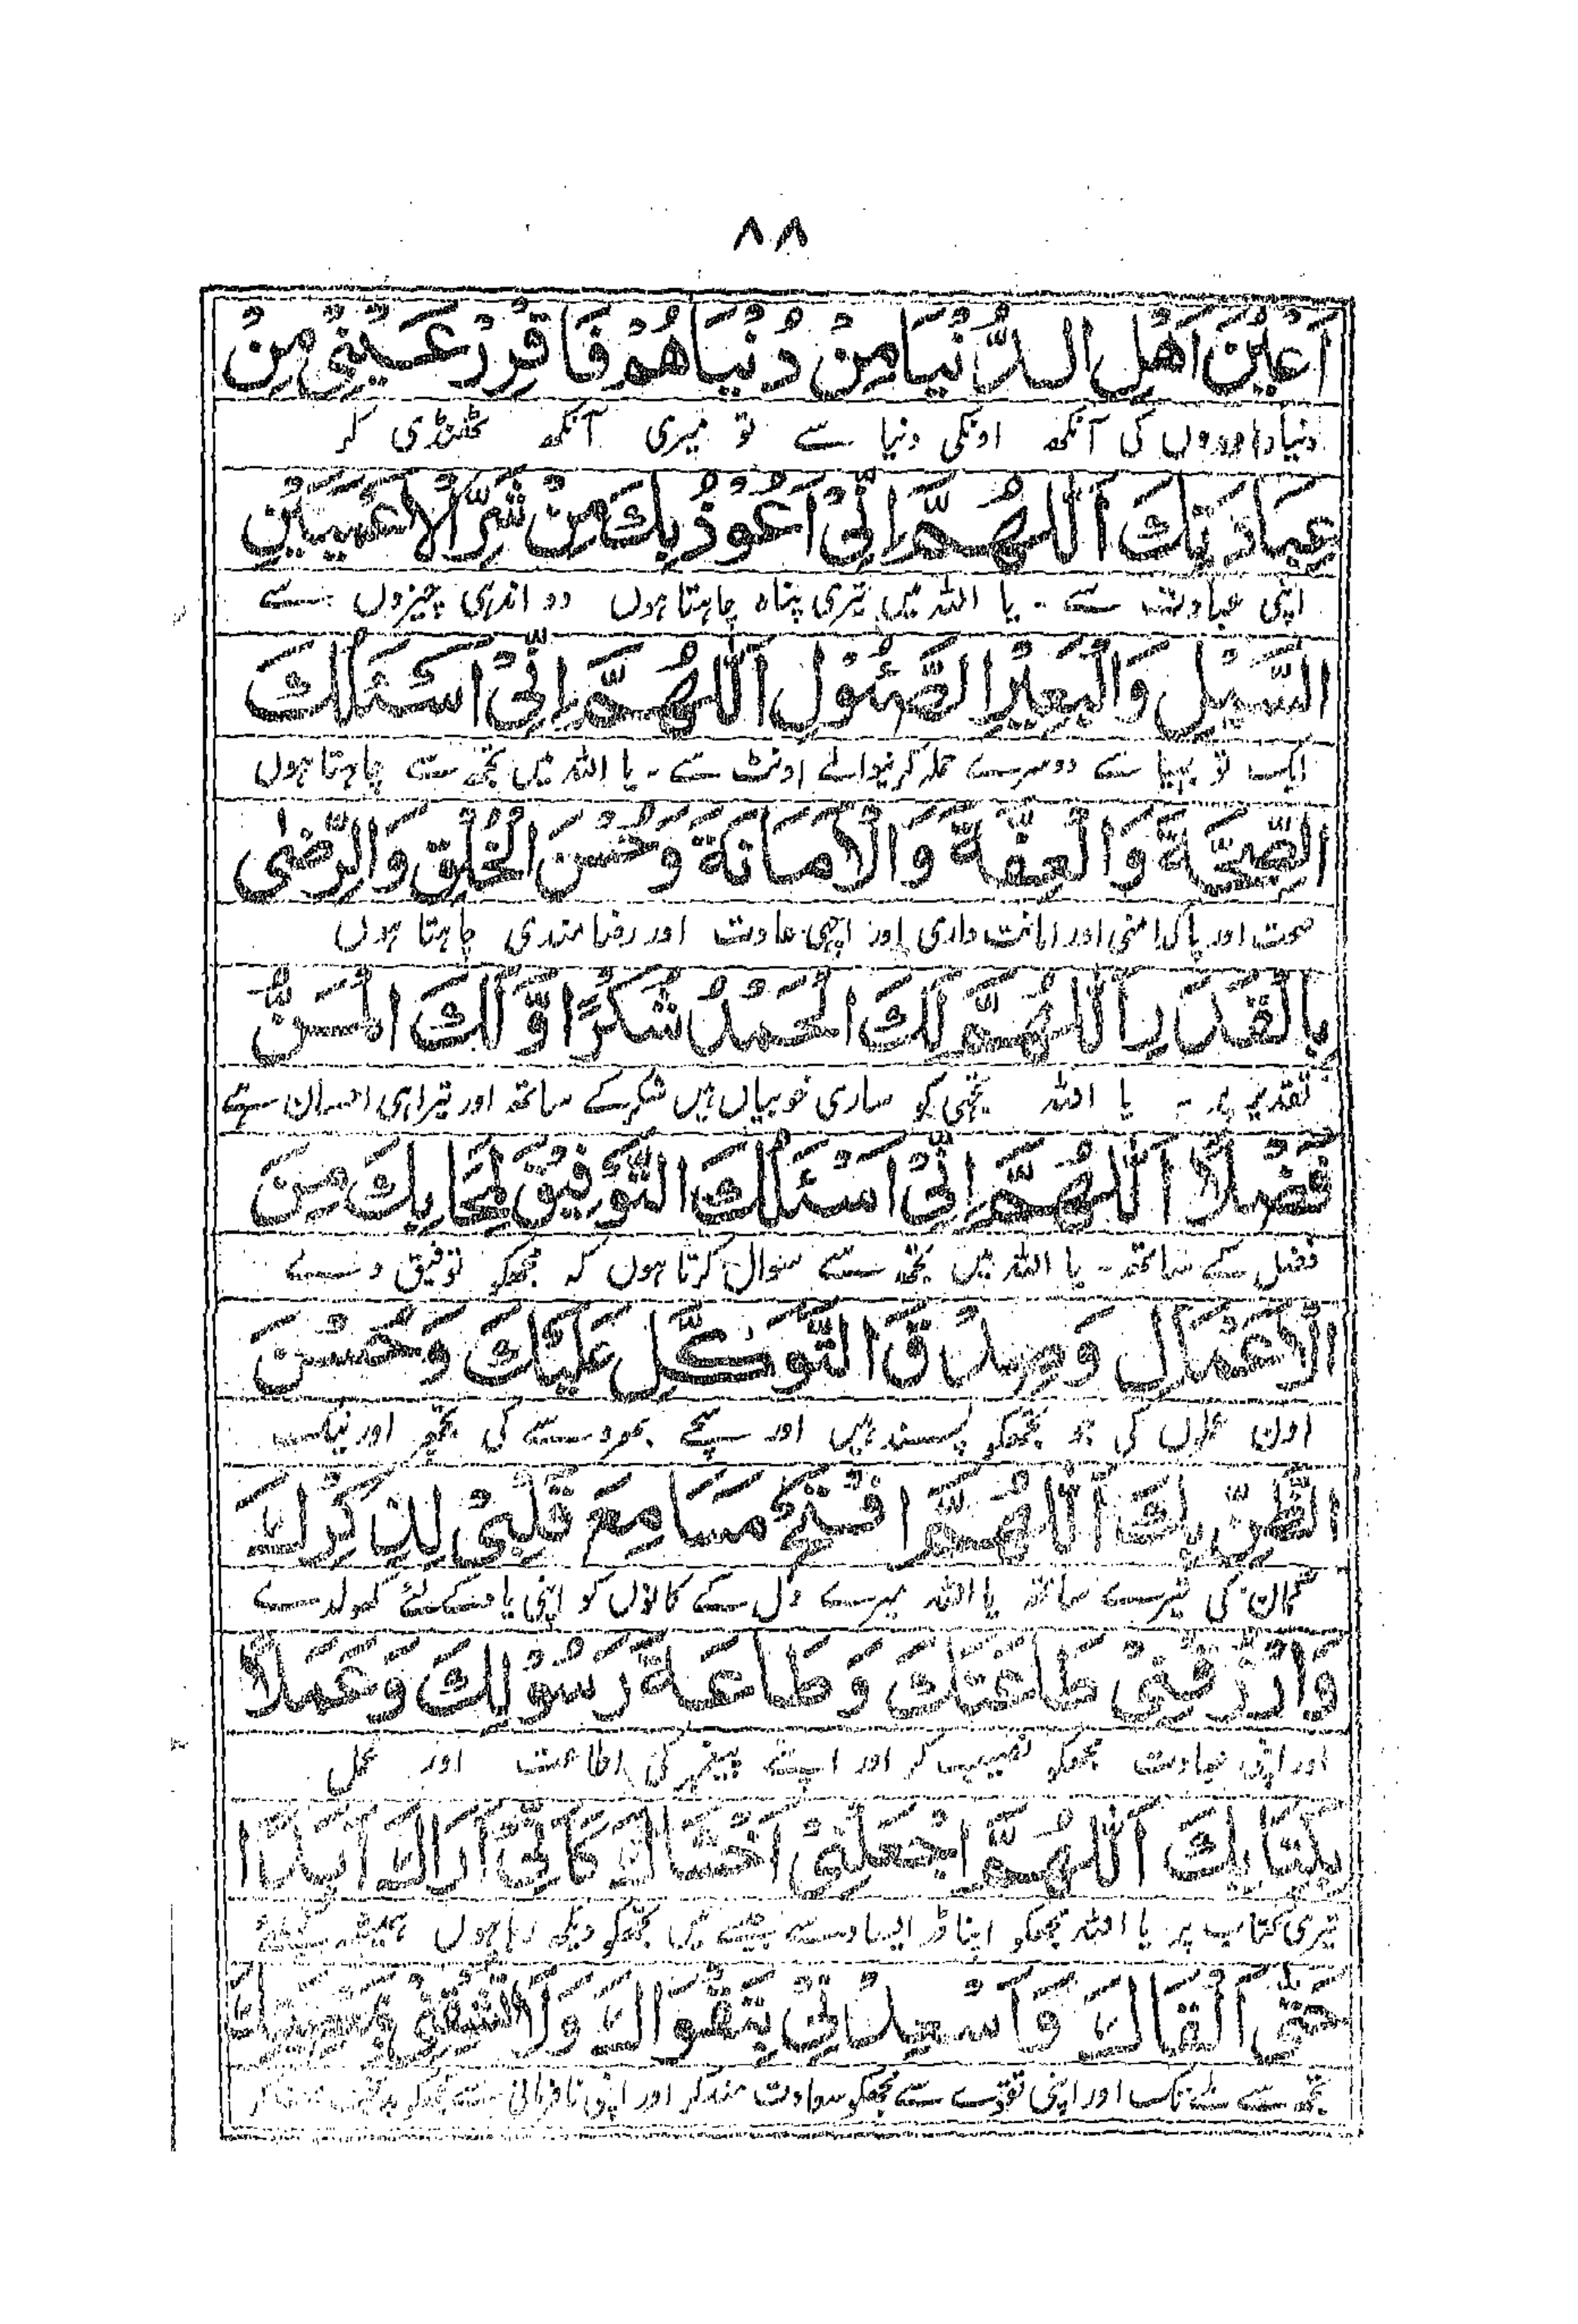 ٨٨
اَعْيُنَ اَهْلِ الدُّنْيَا مِنْ دُنْيَا هُمْ فَاَقْرِرْ عَيْنِىْ مِنْ
دنیاداروں کی آنکھ اونکی دنیا سے تو میری آنکھ ٹھنڈی کر
عِبَادَتِكَ اَللّٰهُمَّ اِنِّىْ اَعُوْذُ بِكَ مِنْ شَرِّ الْاَعْمَيَيْنِ
اپنی عبادت سے ۔ یا اللہ میں تیری پناہ چاہتا ہوں دو اندہی چیزوں سے
السَّيْلِ وَالْبَعِيْرِ الصَّئُوْلِ اَللّٰهُمَّ اِنِّىْ اَسْئَلُكَ
ایک تو بہیا سے دوسرے حملہ کرنیوالے اونٹ سے ۔ یا اللہ میں تجھ سے چاہتا ہوں
الصِّحَّةَ وَالْعِفَّةَ وَالْاَمَانَةَ وَحُسْنَ الْخُلُقِ وَالرِّضٰى
صحت اور پاکدامنی اور امانت داری اور اچھی عادت اور رضامندی چاہتا ہوں
بِالْقَدَرِ اَللّٰهُمَّ لَكَ الْحَمْدُ شُكْرًا وَّلَكَ الْمَنُّ
تقدیر پر ۔ یا اللہ تجہی کو ساری خوبیاں ہیں شکر کے ساتھ اور تیرا ہی احسان ہے
فَضْلًا اَللّٰهُمَّ اِنِّىْ اَسْئَلُكَ التَّوْفِيْقَ لِمَحَابِّكَ مِنَ
فضل کے ساتھ ۔ یا اللہ میں تجھ سے سوال کرتا ہوں کہ مجھکو توفیق دے
الْاَعْمَالِ وَصِدْقَ التَّوَكُّلِ عَلَيْكَ وَحُسْنَ
اون عملوں کی جو تجھکو پسند ہیں اور سچے بھروسے کی تجھپر اور نیک
الظَّنِّ بِكَ اَللّٰهُمَّ افْتَحْ مَسَامِعَ قَلْبِىْ لِذِكْرِكَ
گمان کی تیرے ساتھ یا اللہ میرے دل کے کانوں کو اپنی یاد کے لئے کھولدے
وَارْزُقْنِىْ طَاعَتَكَ وَطَاعَةَ رَسُوْلِكَ وَعَمَلًا
اور اپنی عبادت مجھکو نصیب کر اور اپنے پیغمبر کی اطاعت اور عمل
بِكِتَابِكَ اَللّٰهُمَّ اجْعَلْنِىْ اَخْشَاكَ كَاَنِّىْ اَرَاكَ اَبَدًا
تیری کتاب پر یا اللہ مجھکو اپنا ڈر ایسا دے جیسے میں تجھکو دیکھ رہا ہوں ہمیشہ
حَتّٰى اَلْقَاكَ وَاَسْعِدْنِىْ بِتَقْوَاكَ وَلَا تُشْقِنِىْ
تجھ سے ملنے تک اور اپنی تقوے سے مجھکو سعادت مند کر اور اپنی نافرمانی سے مجھکو